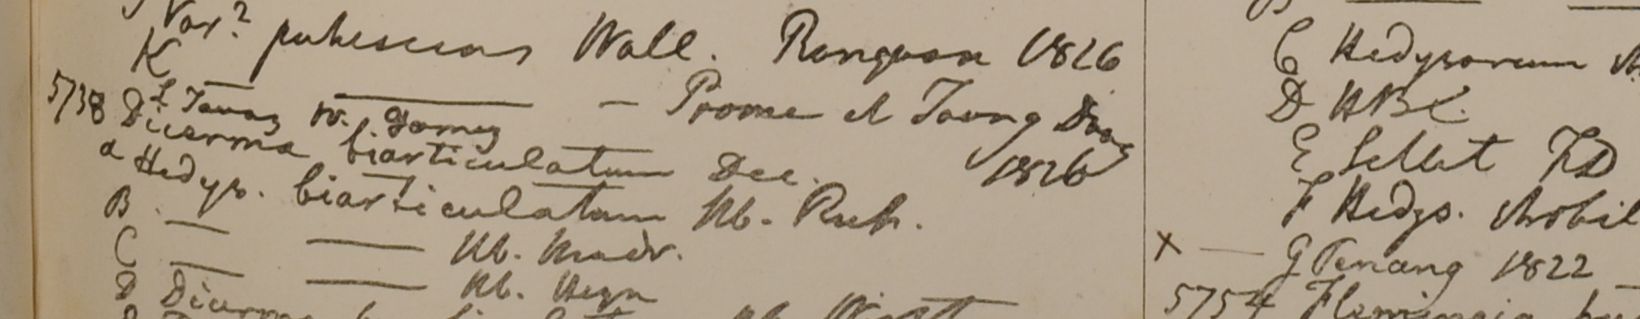 Var? pubescens Wall. Rangoon 1826
K — — — Prome et Taong Dong 1826
L Tavoy W. Gomez
5738 Dicerma biarticulatum Dec.
a Hedys. biarticulatum Hb. Roxb.
B — — Hb. Madr.
C — — Hb. Heyn
D Dicerma
C Hedysarum
D HBC.
E Sellet FD
F Hedys.
x — G Penang 1822 —
5754 Flemingia